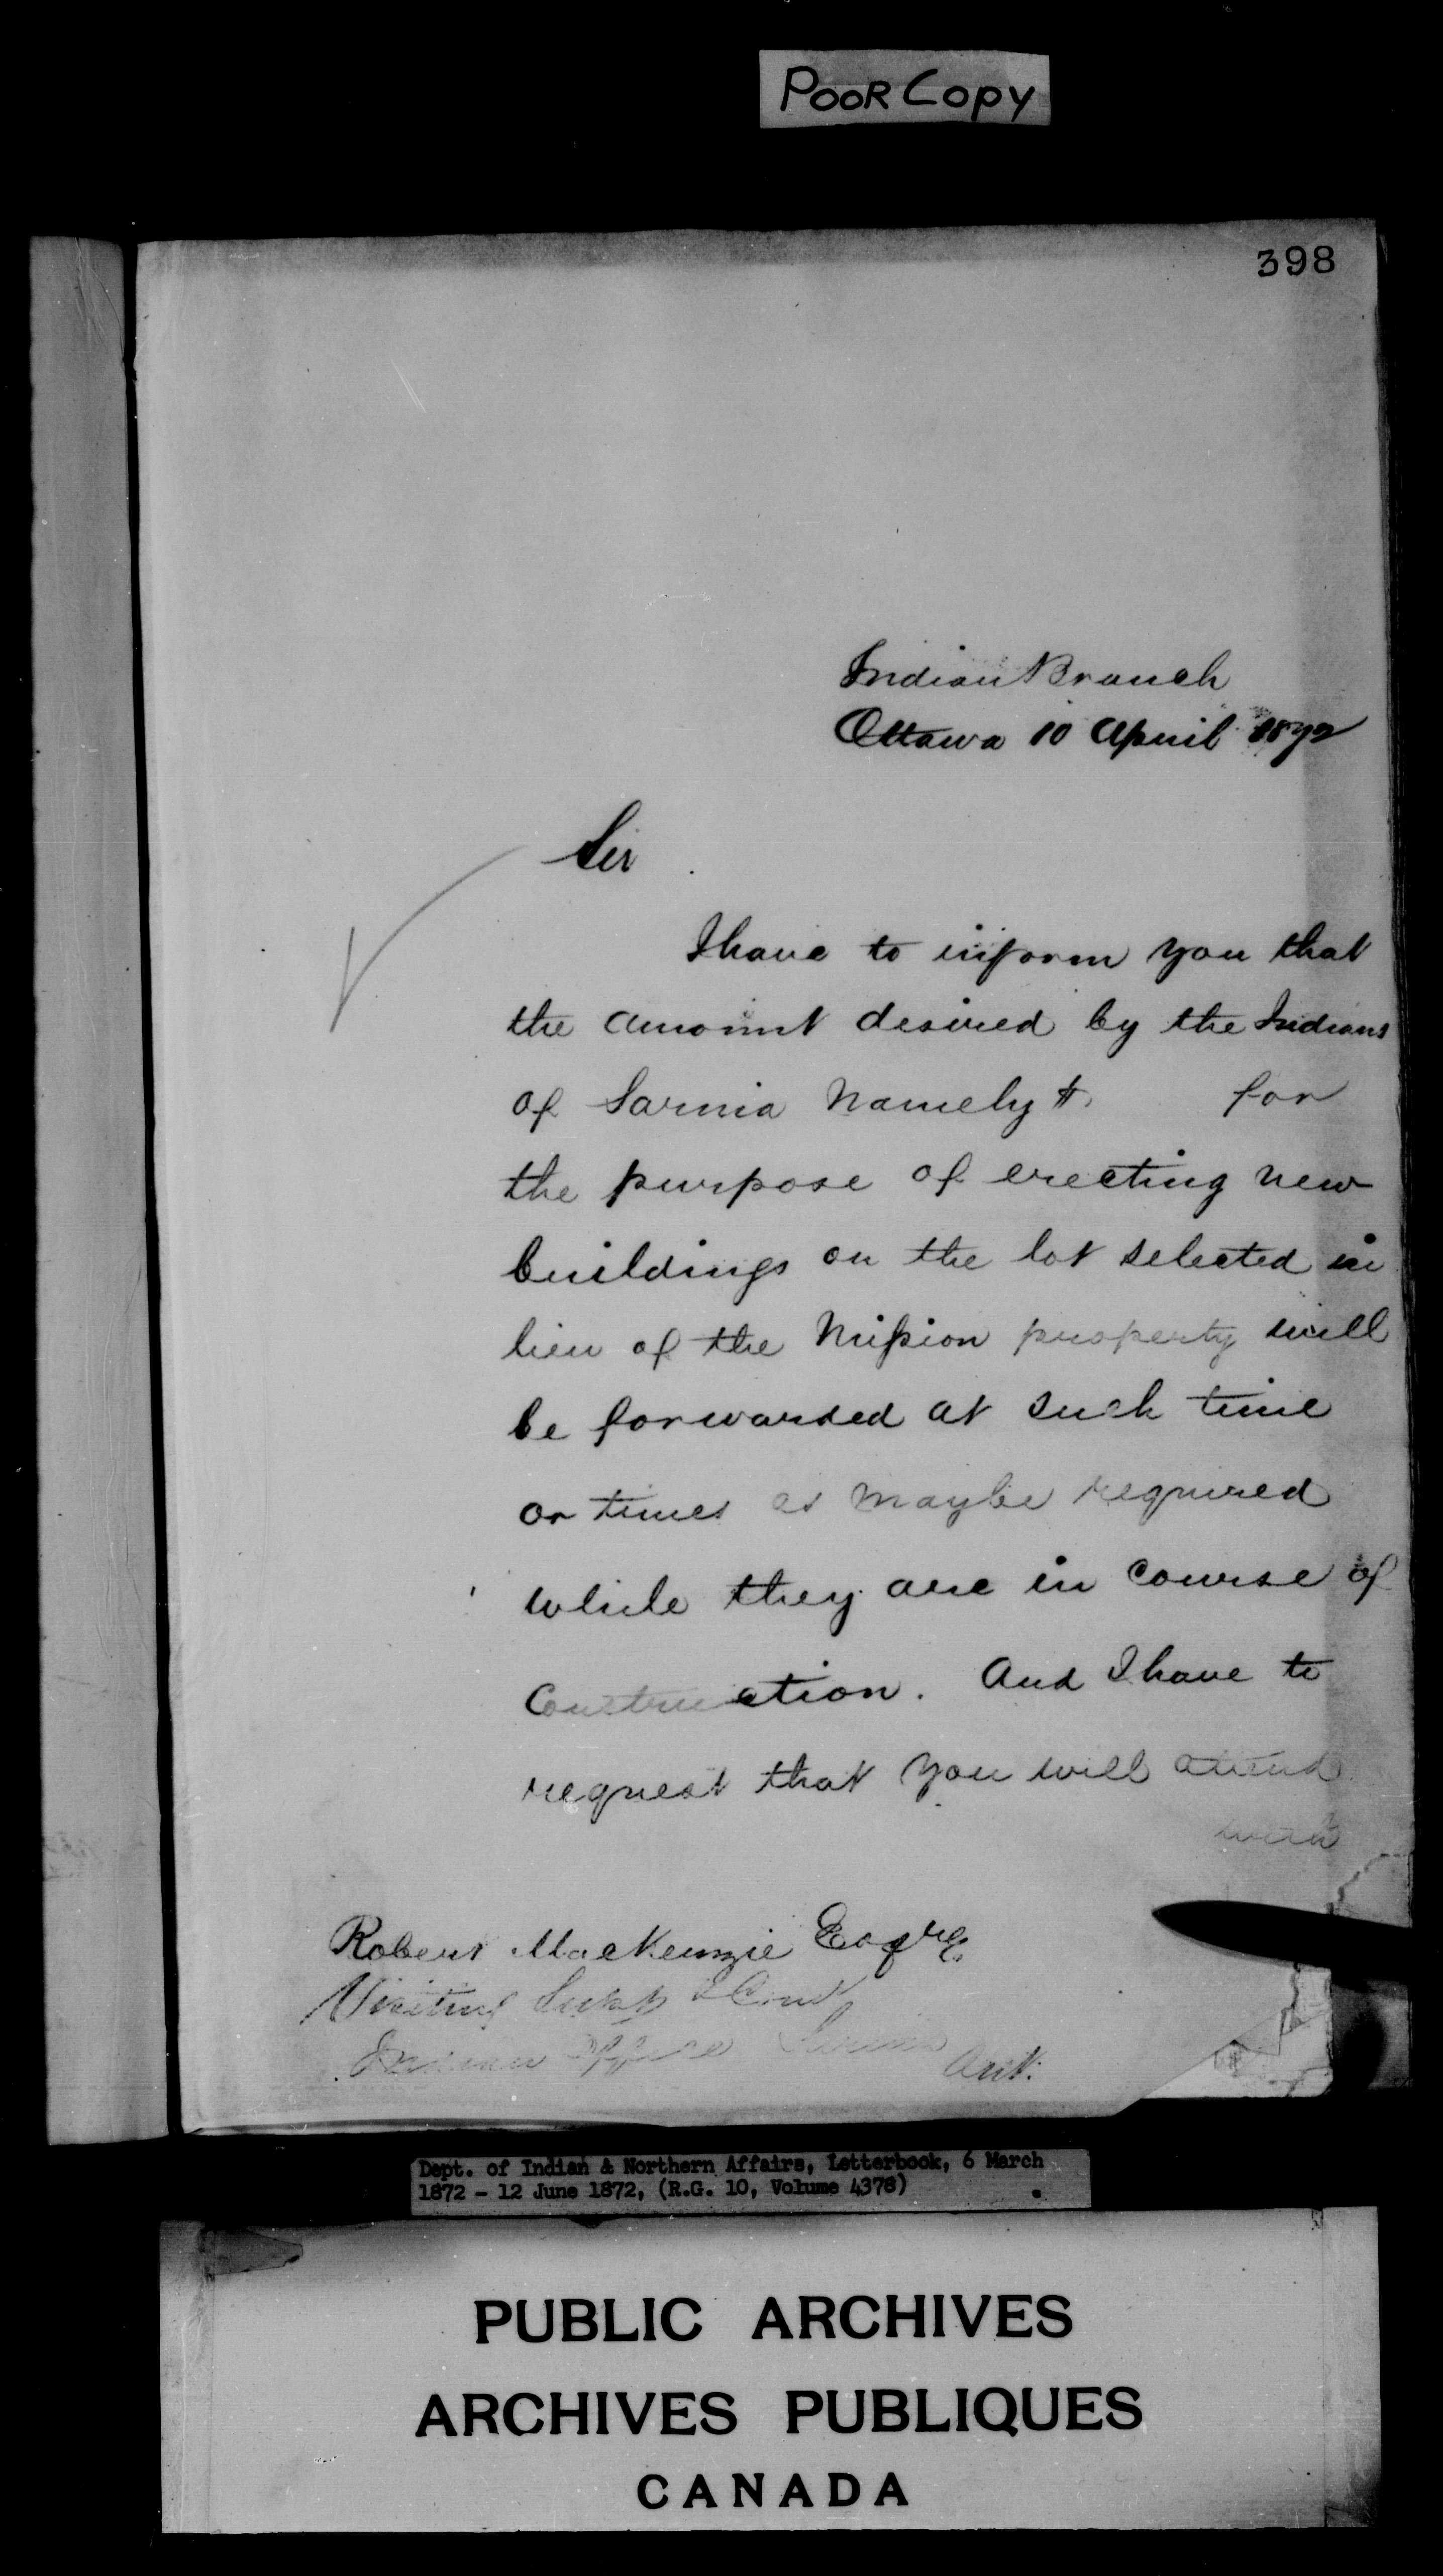 POOR COPY
398
Indian Branch
Ottawa 10 April 1872
Sir
I have to inform you that
the amount desired by the Indians
of Sarnia namely $ for
the purpose of erecting new
buildings on the lot selected in
lieu of the Mission property will
be forwarded at such time
or times as maybe required
while they are in course of
Construction. And I have to
request that you will attend
with
Robert MacKenzie Esqre
Visiting Supt & Comr
Indian Office Sarnia Ont.
Dept. of Indian & Northern Affairs, Letterbook, 6 March
1872 - 12 June 1872, (R.G. 10, Volume 4378)
PUBLIC ARCHIVES
ARCHIVES PUBLIQUES
CANADA